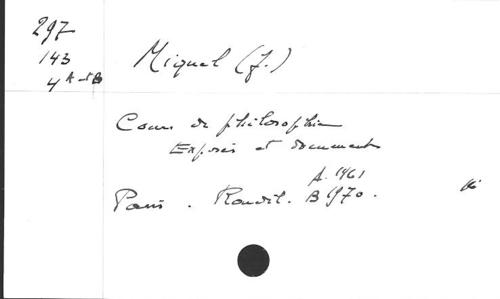 297
143
4 A et B
Miquel (J.)
Cours de philosophie
Exposés et documents
A. 1961
Paris. Roudil. B 1970.